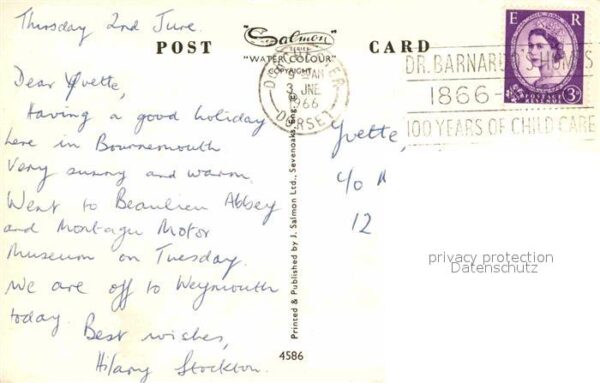 Thursday 2nd June.
POST
"Salmon"
SERIES
"WATER COLOUR"
COPYRIGHT
CARD
E R
POSTAGE
REVENUE
3D
DR. BARNARDO'S HOMES
1866-
100 YEARS OF CHILD CARE
DORCHESTER
9 - AM
3 JNE
1966
DORSET
Dear Yvette,
Having a good holiday
here in Bournemouth
Very sunny and warm.
Went to Beaulieu Abbey
and Montagu Motor
Museum on Tuesday.
We are off to Weymouth
today.
Best wishes,
Hilary Stockton.
Printed & Published by J. Salmon Ltd., Sevenoaks, Eng. ©
4586
Yvette,
c/o
12
privacy protection
Datenschutz